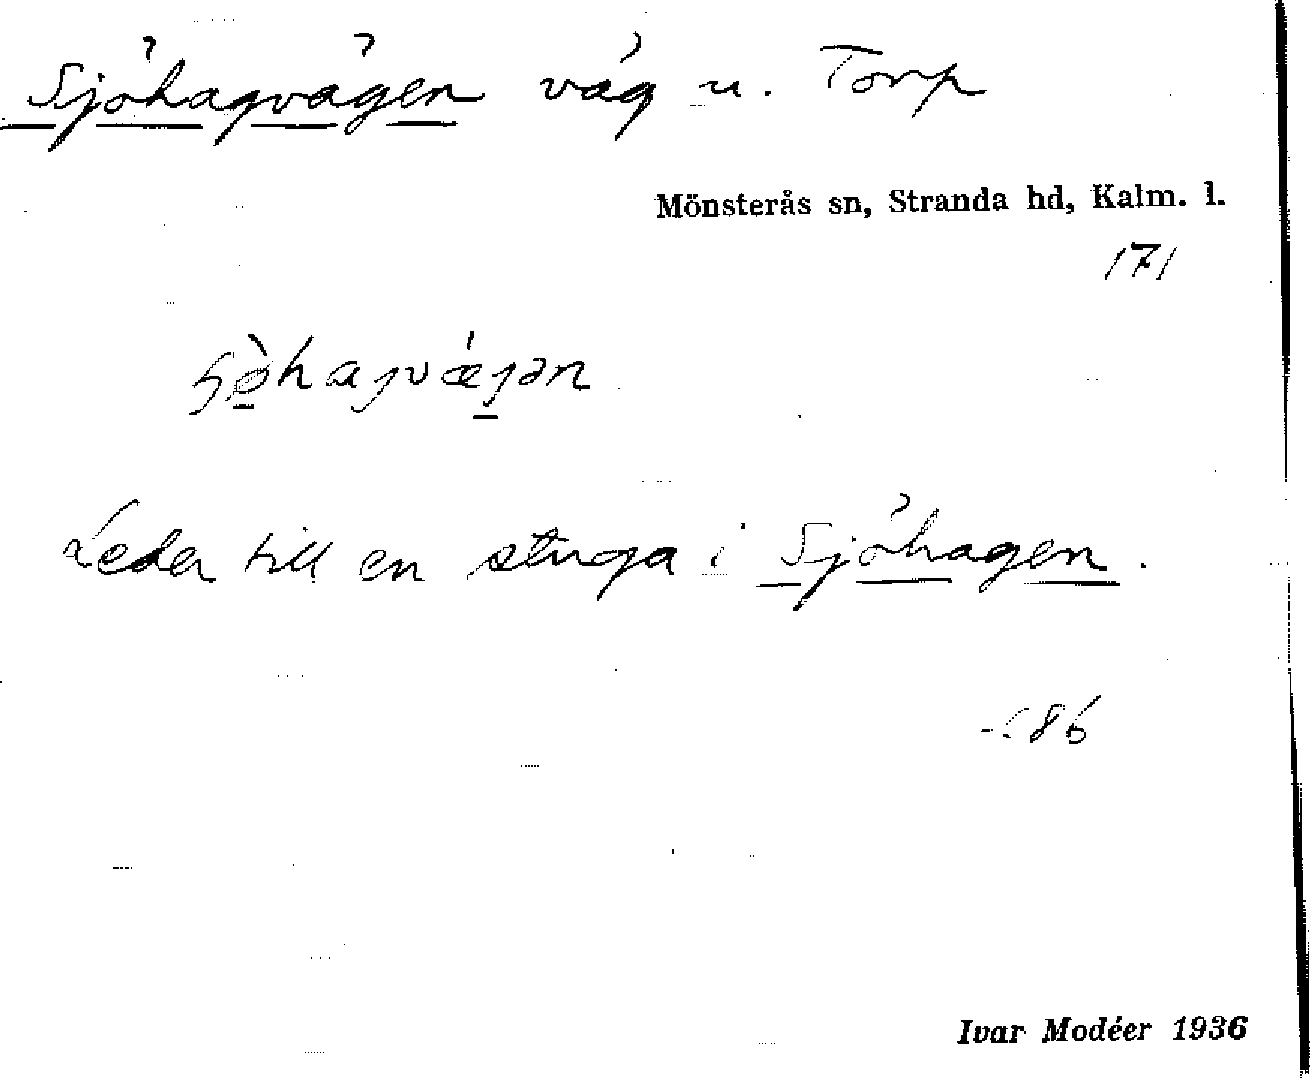 Sjöhagvägen väg u. Torp
Mönsterås sn, Stranda hd, Kalm. l.
171
Leder till en stuga i Sjöhagen.
86
Ivar Modéer 1936